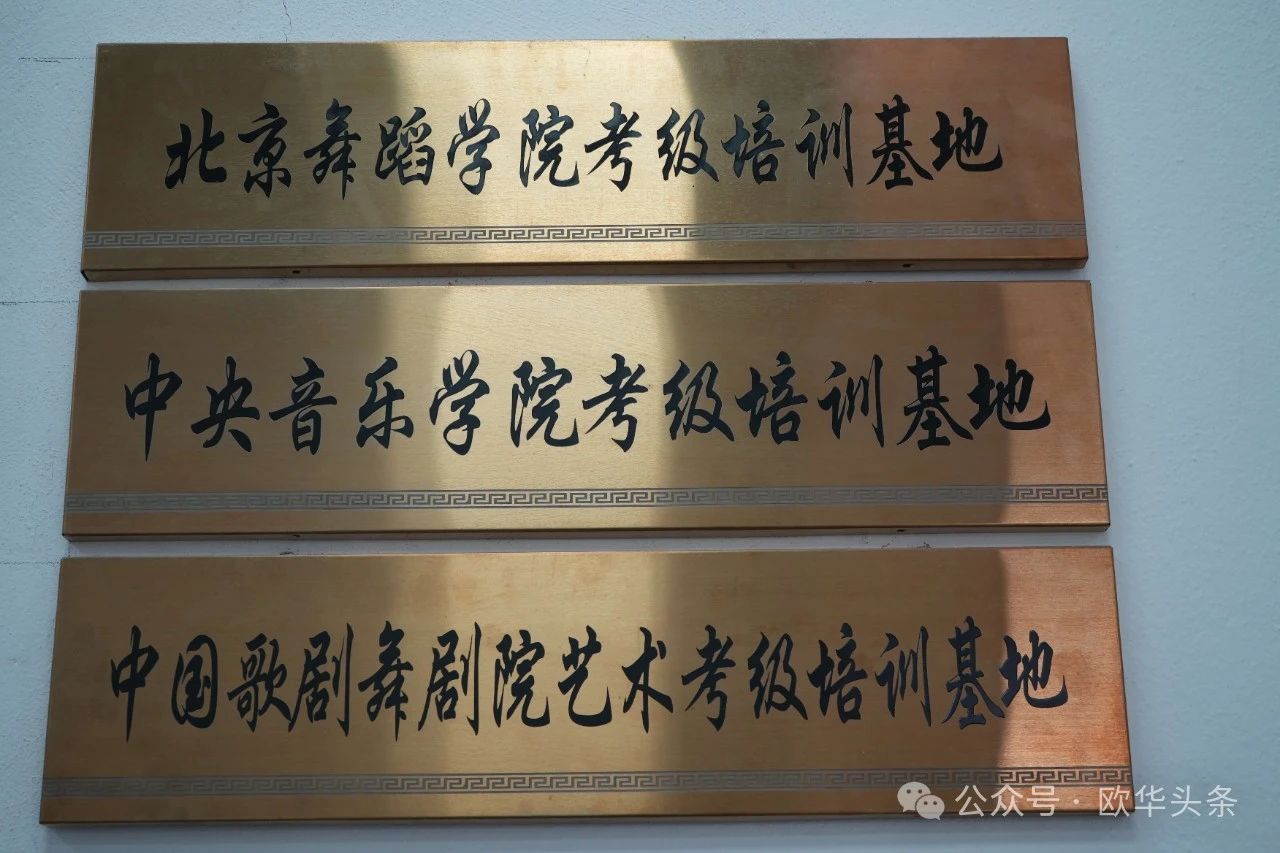 北京舞蹈学院考级培训基地
中央音乐学院考级培训基地
中国歌剧舞剧院艺术考级培训基地
公众号·欧华头条